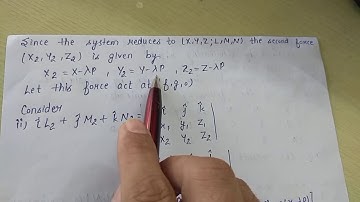 Since the system reduces to (X,Y,Z; L,N,N) the second force
(X₂, Y₂, Z₂) is given by
X₂ = X-λP, Y₂ = Y-λP, Z₂ = Z-λP
Let this force act at f,g,o)
Consider
ii) î L₂ + ĵ M₂ + k̂ N₂ = î ĵ k̂
x, y, Z₁
X₂ Y₂ Z₂